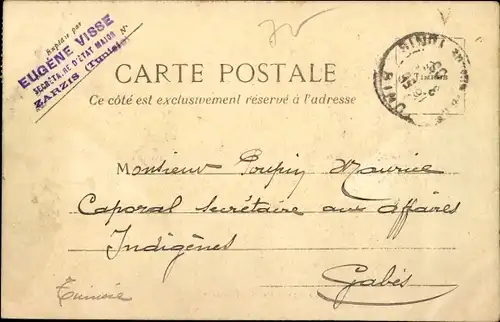 Expédié par
EUGÈNE VISSE
SECRÉTAIRE D'ÉTAT MAJOR
ZARZIS (Tunisie) N°
CARTE POSTALE
Ce côté est exclusivement réservé à l'adresse
TIMBRE
Monsieur Poupin Maurice
Caporal secrétaire aux affaires
Indigènes
Gabès
Tunisie